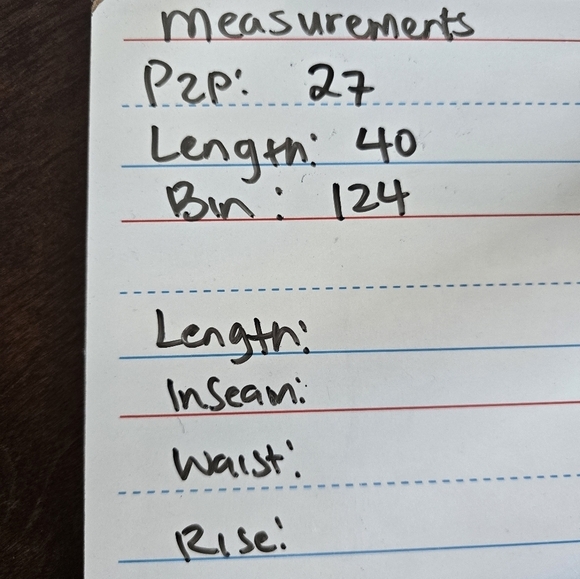 Measurements
P2P: 27
Length: 40
Bin: 124
Length:
Inseam:
Waist:
Rise: